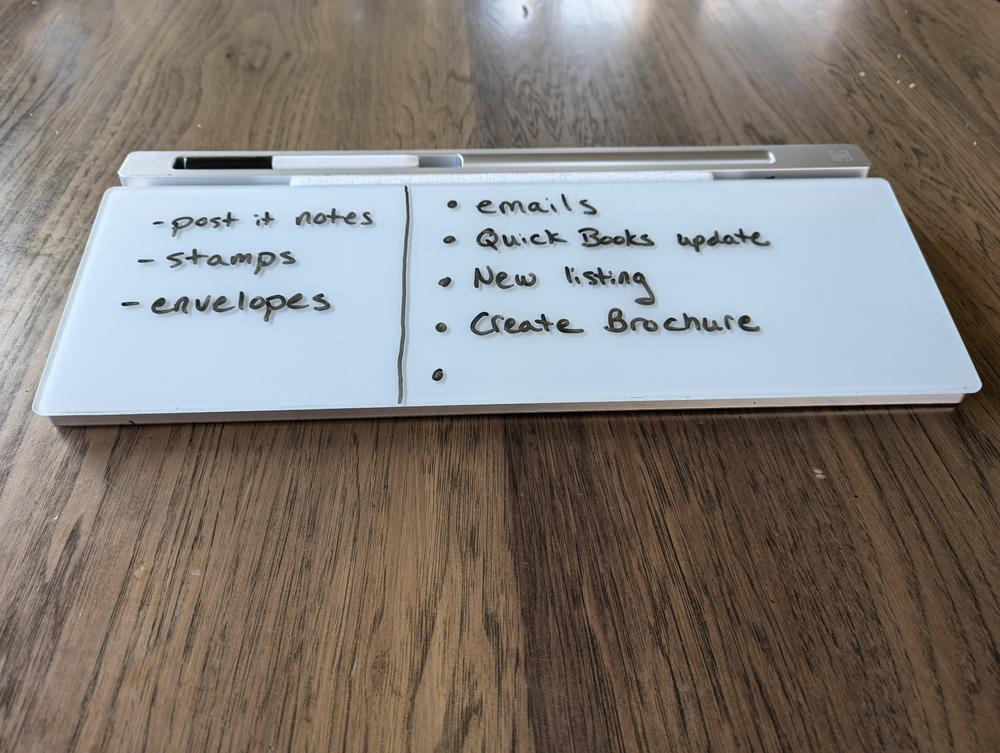 - post it notes
- stamps
- envelopes
• emails
• Quick Books update
• New listing
• Create Brochure
•